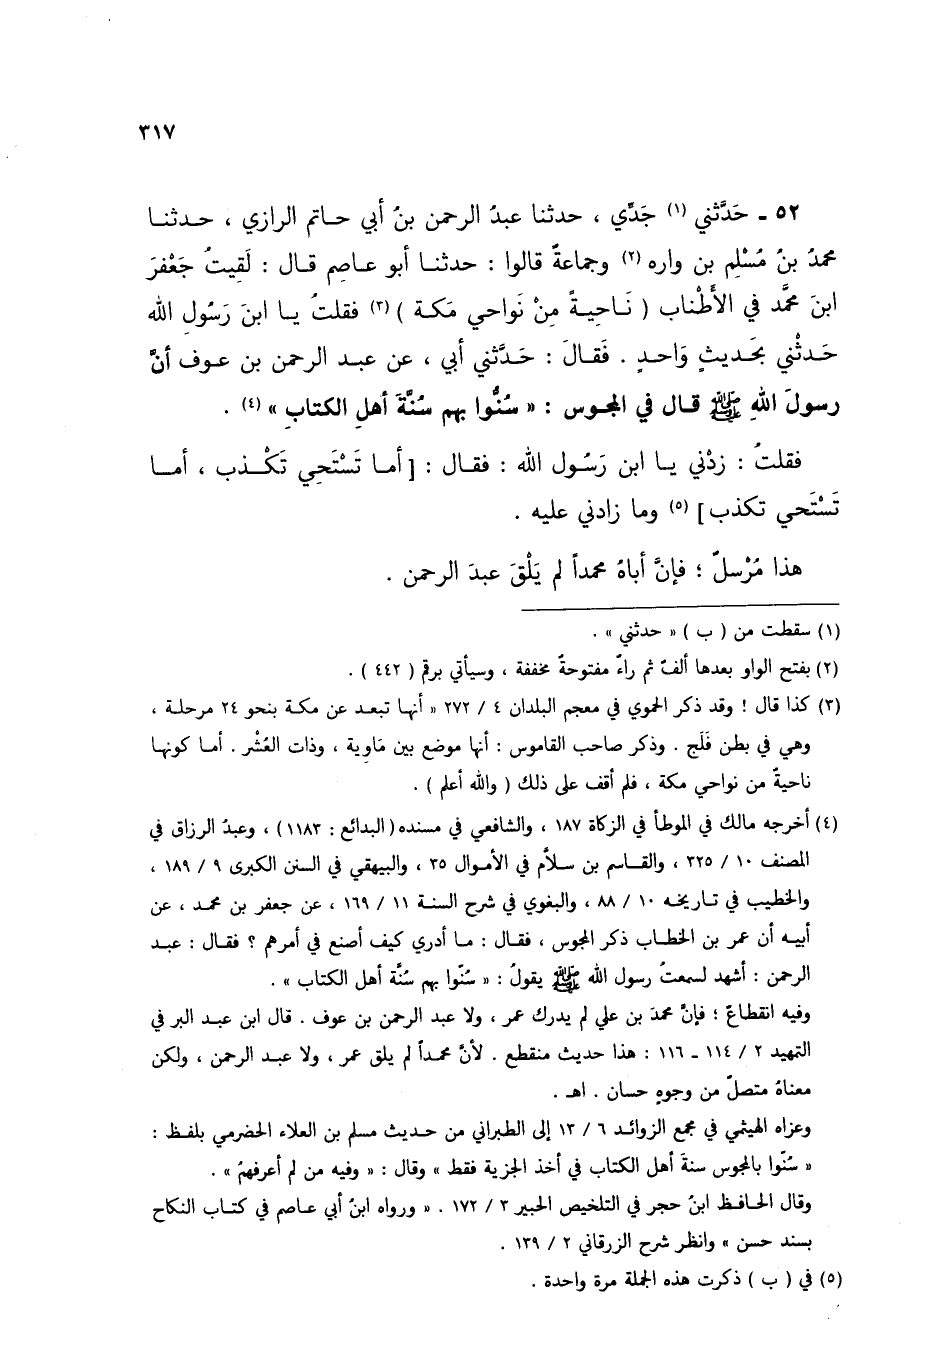 ٣١٧
٥٢ ـ حَدَّثني (١) جَدِّي ، حدثنا عبدُ الرحمن بنُ أبي حاتم الرازي ، حدثنا
محمدُ بنُ مُسْلِم بن واره (٢) وجماعةٌ قالوا : حدثنا أبو عاصم قال : لَقِيتُ جَعْفَرَ
ابنَ محمَّد في الأَطْناب ( نَاحِيةً مِنْ نَواحي مَكة ) (٣) فقلتُ يا ابنَ رَسُولِ الله
حَدثْني بحَديثٍ وَاحدٍ . فَقالَ : حَدَّثني أبي ، عن عبد الرحمن بن عوف أنَّ
رسولَ اللهِ ﷺ قال في المجوس : « سُنُّوا بهم سُنَّةَ أهلِ الكتابِ » (٤) .
فقلتُ : زِدْني يا ابن رَسُول الله : فقال : [ أما تَسْتَحِي تَكْذب ، أما
تَسْتَحي تكذب ] (٥) وما زادني عليه .
هذا مُرْسلٌ ؛ فإنَّ أباهُ محمداً لم يَلْقَ عبدَ الرحمن .
(١) سقطت من ( ب ) « حدثني » .
(٢) بفتح الواو بعدها ألفٌ ثم راءٌ مفتوحةٌ مخففة ، وسيأتي برقم ( ٤٤٢ ) .
(٣) كذا قال ! وقد ذكر الحموي في معجم البلدان ٤ / ٢٧٢ « أنها تبعد عن مكة بنحو ٢٤ مرحلة ،
وهي في بطن فَلَج . وذكر صاحب القاموس : أنها موضع بين مَاوية ، وذات العُشْر . أما كونها
ناحيةً من نواحي مكة ، فلم أقف على ذلك ( والله أعلم ) .
(٤) أخرجه مالك في الموطأ في الزكاة ١٨٧ ، والشافعي في مسنده ( البدائع : ١١٨٣ ) ، وعبدُ الرزاق في
المصنف ١٠ / ٣٢٥ ، والقاسم بن سلاَّم في الأموال ٣٥ ، والبيهقي في السنن الكبرى ٩ / ١٨٩ ،
والخطيب في تاريخه ١٠ / ٨٨ ، والبغوي في شرح السنة ١١ / ١٦٩ ، عن جعفر بن محمد ، عن
أبيه أن عمر بن الخطاب ذكر المجوس ، فقال : ما أدري كيف أصنع في أمرهم ؟ فقال : عبد
الرحمن : أشهد لسمعتُ رسول الله ﷺ يقولُ : « سُنّوا بهم سُنَّة أهل الكتاب » .
وفيه انقطاعٌ ؛ فإنَّ محمدَ بن علي لم يدرك عمر ، ولا عبد الرحمن بن عوف . قال ابن عبد البر في
التمهيد ٢ / ١١٤ ـ ١١٦ : هذا حديث منقطع . لأنَّ محمداً لم يلق عمر ، ولا عبد الرحمن ، ولكن
معناهُ متصلٌ من وجوهٍ حسان . اهـ .
وعزاه الهيثمي في مجمع الزوائد ٦ / ١٣ إلى الطبراني من حديث مسلم بن العلاء الحضرمي بلفظ :
« سُنّوا بالمجوس سنةَ أهل الكتاب في أخذ الجزية فقط » وقال : « وفيه من لم أعرفهمْ » .
وقال الحافظ ابنُ حجر في التلخيص الحبير ٣ / ١٧٢ . « ورواه ابنُ أبي عاصم في كتاب النكاح
بسند حسن » وانظر شرح الزرقاني ٢ / ١٣٩ .
(٥) في ( ب ) ذكرت هذه الجملة مرة واحدة .